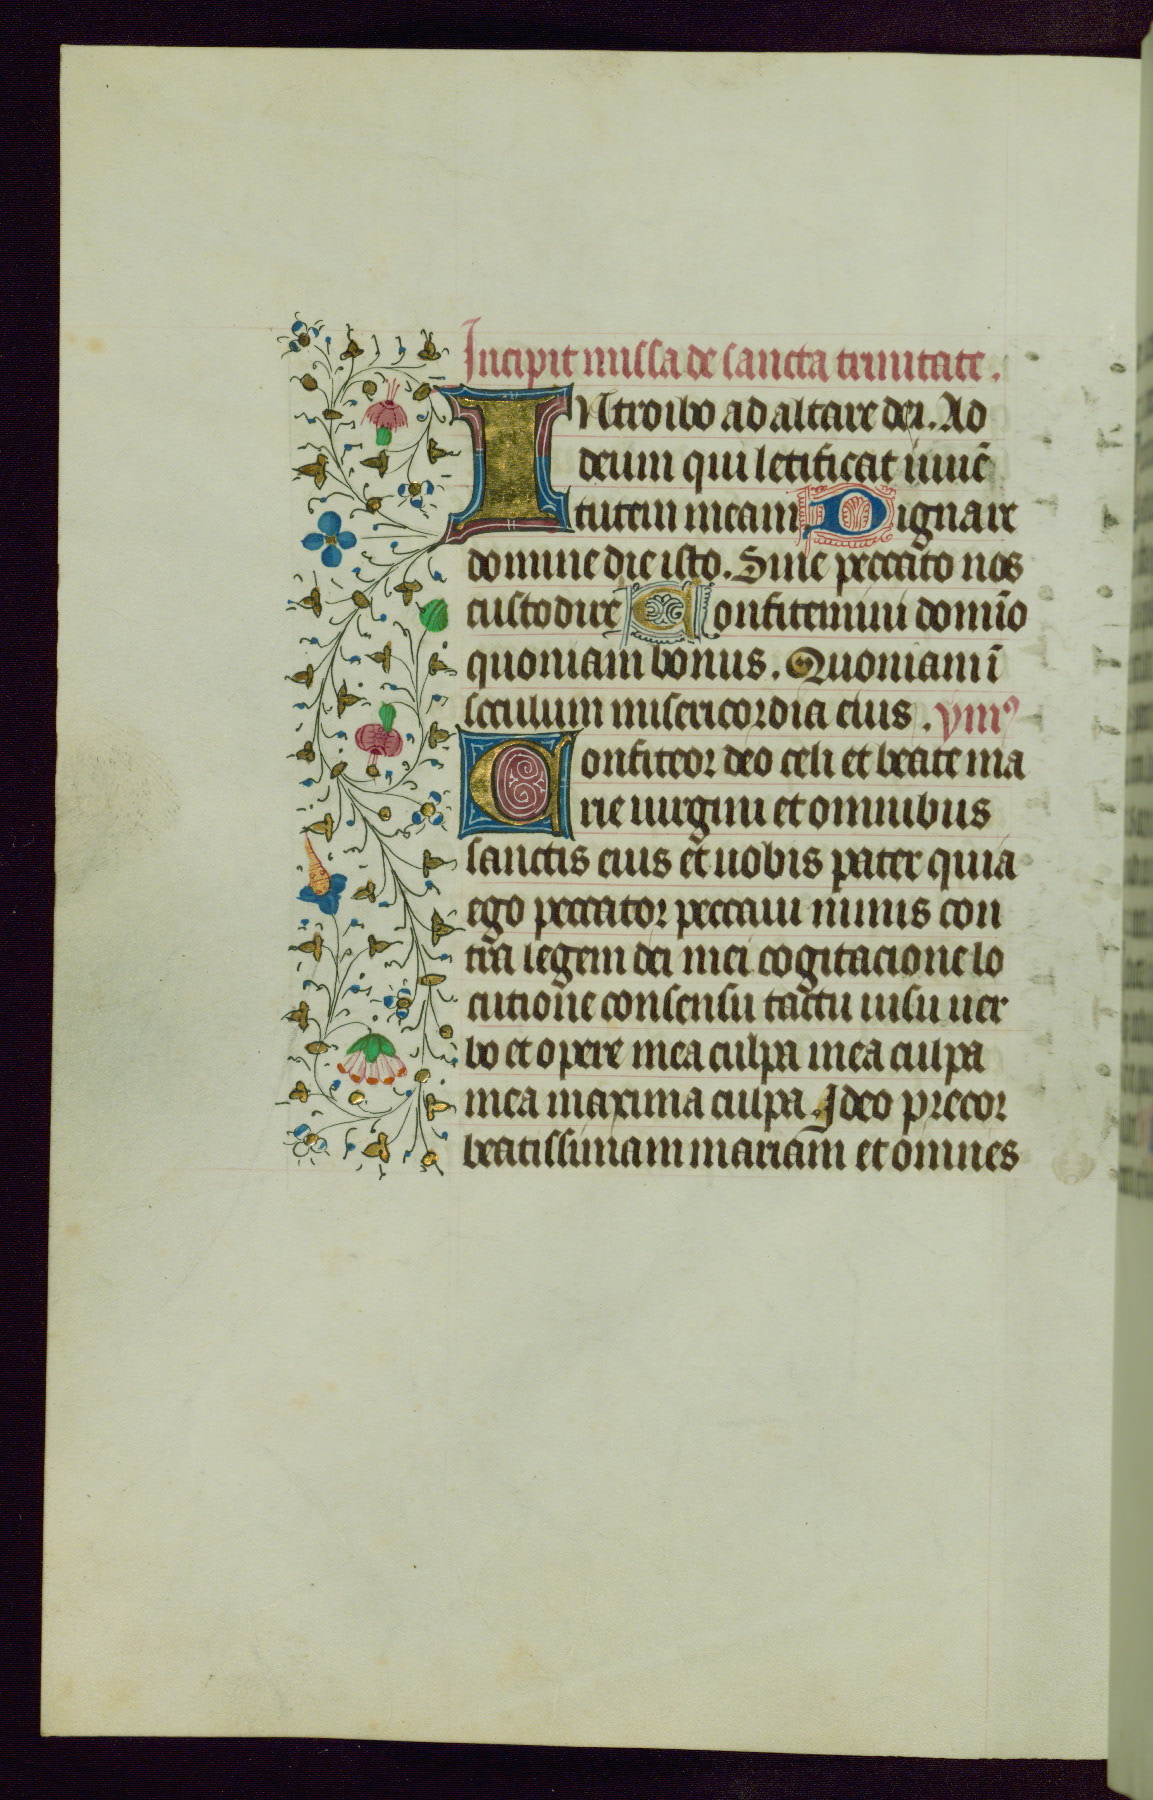 Incipit missa de sancta trinitate.
INtroibo ad altare dei. Ad
deum qui letificat iuuē
tutem meam Dignare
domine die isto. Sine peccāto nos
custodire Confitemini domīo
quoniam bonus. Quoniam ī
seculum misericordia eius.
Confiteor deo celi et beate ma
rie uirgini et omnibus
sanctis eius et uobis pater quia
ego peccator peccaui nimis con
tra legem dei mei cogitacione lo
cutione consensu tactu uisu uer
bo et opere mea culpa mea culpa
mea maxima culpa. Ideo precor
beatissimam mariam et omnes